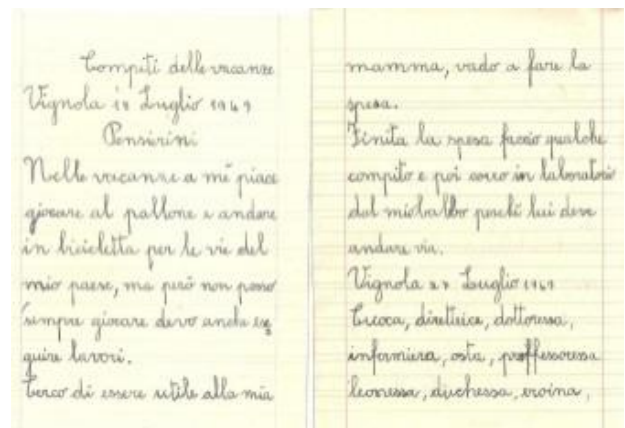 Compiti delle vacanze
Vignola Luglio 1969
Pensierini
Nelle vacanze a me piace
giocare al pallone e andare
in bicicletta per le vie del
mio paese, ma però non posso
sempre giocare devo anche ese
guire lavori.
Cerco di essere utile alla mia
mamma, vado a fare la
spesa.
Finita la spesa faccio qualche
compito e poi corro in laboratorio
dal mio babbo perché lui deve
andare via.
Vignola Luglio 1969
Cuoca, direttrice, dottoressa,
infermiera, osta, proffessoressa
leonessa, duchessa, eroina,